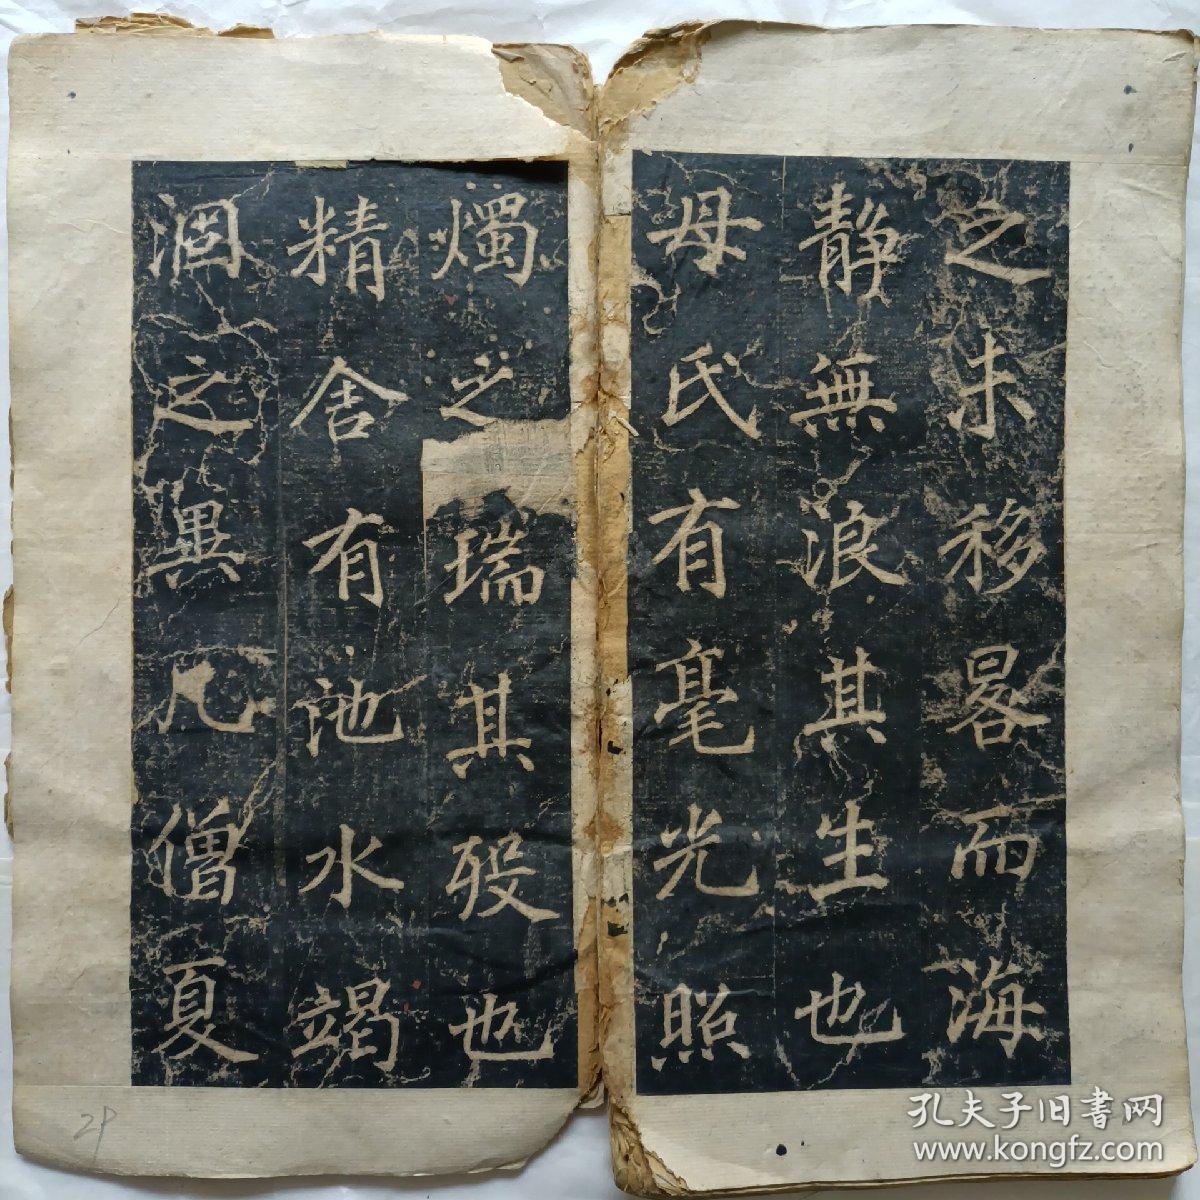 之未移晷而海
静無浪其生也
母氏有毫光照
燭之瑞其殁也
精舍有池水竭
涸之異凡僧夏
24
孔夫子旧書网
www.kongfz.com